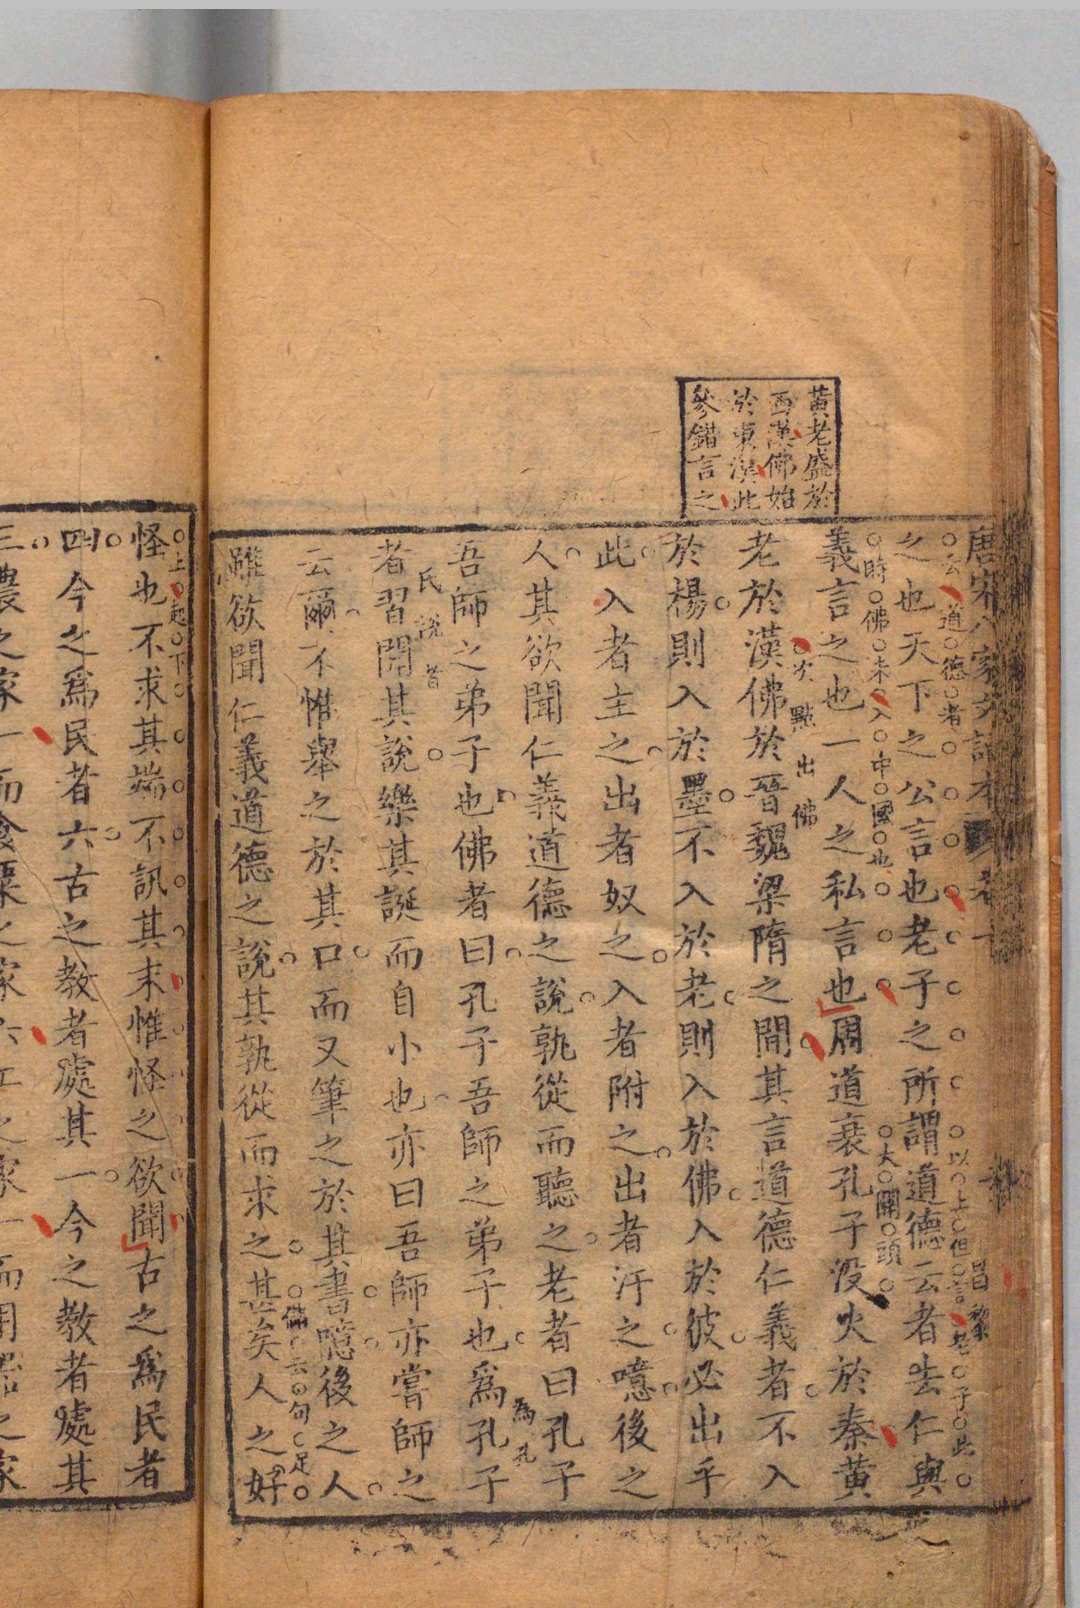 黃老盛於
西漢佛始
於東漢此
參錯言之
唐宋八家文讀本 卷一
昌黎
之也天下之公言也老子之所謂道德云者去仁與
云道德者
以上但言老子此
義言之也一人之私言也周道衰孔子没火於秦黃
時佛未入中國也
大開頭
老於漢佛於晉魏梁隋之間其言道德仁義者不入
次點出佛
於楊則入於墨不入於老則入於佛入於彼必出乎
此入者主之出者奴之入者附之出者汙之噫後之
人其欲聞仁義道德之說孰從而聽之老者曰孔子
吾師之弟子也佛者曰孔子吾師之弟子也爲孔子
爲孔
者習聞其說樂其誕而自小也亦曰吾師亦嘗師之
氏說者
云爾不惟舉之於其口而又筆之於其書噫後之人
雖欲聞仁義道德之說其孰從而求之甚矣人之好
備云句足
怪也不求其端不訊其末惟怪之欲聞古之爲民者
上起下
四今之爲民者六古之教者處其一今之教者處其
三農之家一而食粟之家六工之家一而用器之家